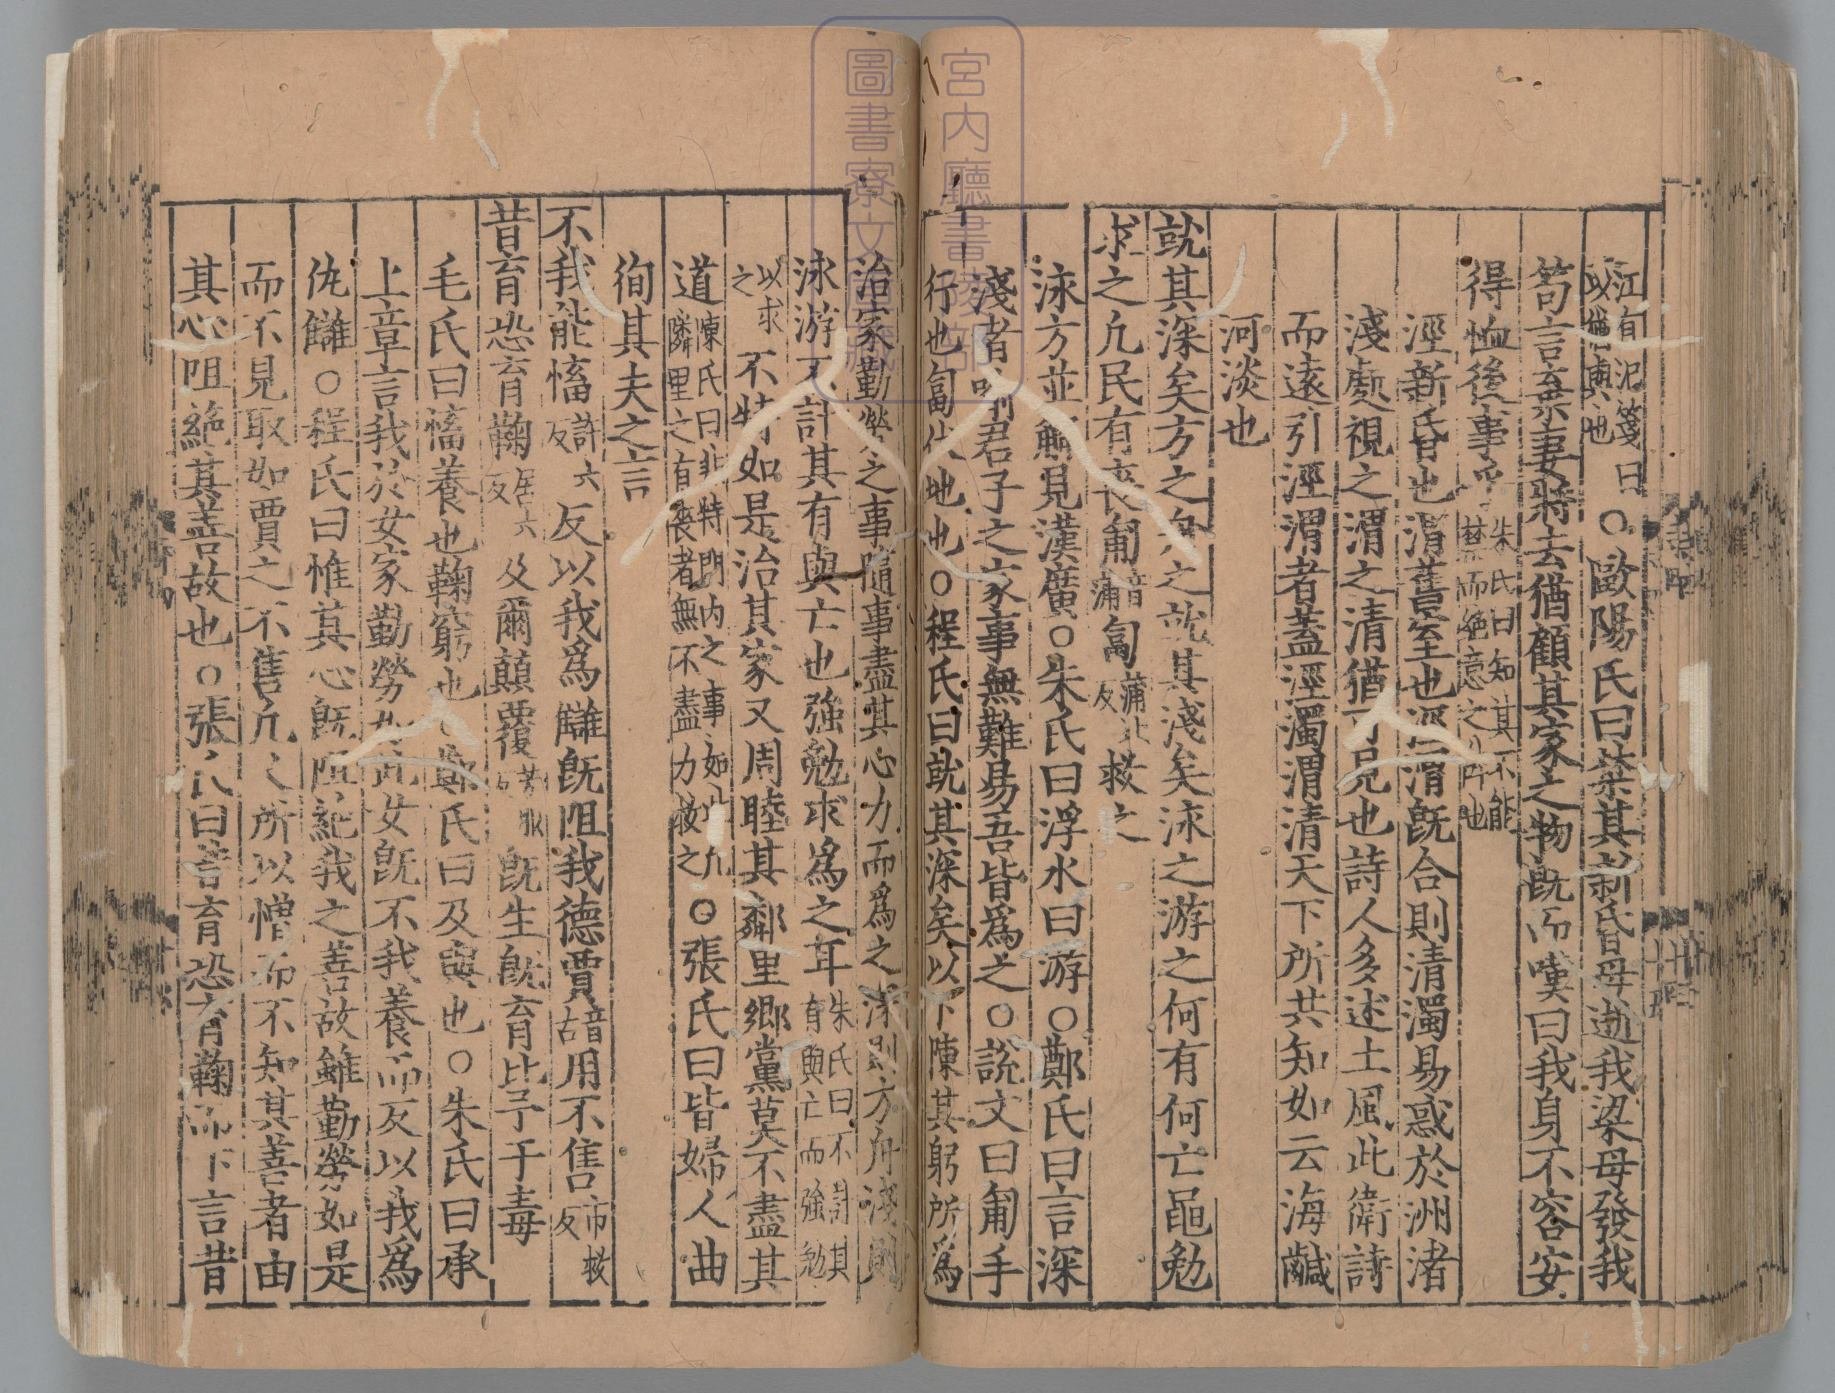 江有汜箋曰
以猶與也
○歐陽氏曰禁其新昏毋逝我梁毋發我
笱言棄妻將去猶顧其家之物既而嘆曰我身不容安
得恤後事乎
朱氏曰知其不能
禁而絶意之辭也
涇新昏也渭舊室也涇渭既合則清濁易惑於洲渚
淺處視之渭之清猶可見也詩人多述土風此衛詩
而遠引涇渭者蓋涇濁渭清天下所共知如云海鹹
河淡也
就其深矣方之舟之就其淺矣泳之游之何有何亡黽勉
求之凡民有喪匍
音
蒲
匐
蒲北
反
救之
泳方並觧見漢廣○朱氏曰浮水曰游○鄭氏曰言深
淺者喻君子之家事無難易吾皆爲之○說文曰匍手
行也匐伏地也○程氏曰就其深矣以下陳其躬所爲
治家勤勞之事隨事盡其心力而爲之深則方舟淺則
泳游不計其有與亡也強勉求爲之耳
朱氏曰不計其
有與亡而強勉
以求
之
不特如是治其家又周睦其鄰里鄉黨莫不盡其
道
陳氏曰非特門内之事如此凡
隣里之有喪者無不盡力救之
○張氏曰皆婦人曲
徇其夫之言
不我能慉
許六
反
反以我爲讎既阻我德賈
音
古
用不售
市救
反
昔育恐育鞠
居六
反
及爾顛覆
芳服
反
既生既育比予于毒
毛氏曰慉養也鞠窮也○鄭氏曰及與也○朱氏曰承
上章言我於女家勤勞如此女既不我養而反以我爲
仇讎○程氏曰惟其心既阻絶我之善故雖勤勞如是
而不見取如賈之不售凡人所以憎而不知其善者由
其心阻絶其善故也○張氏曰昔育恐育鞠而下言昔
宮内廳書陵部
圖書寮文庫藏